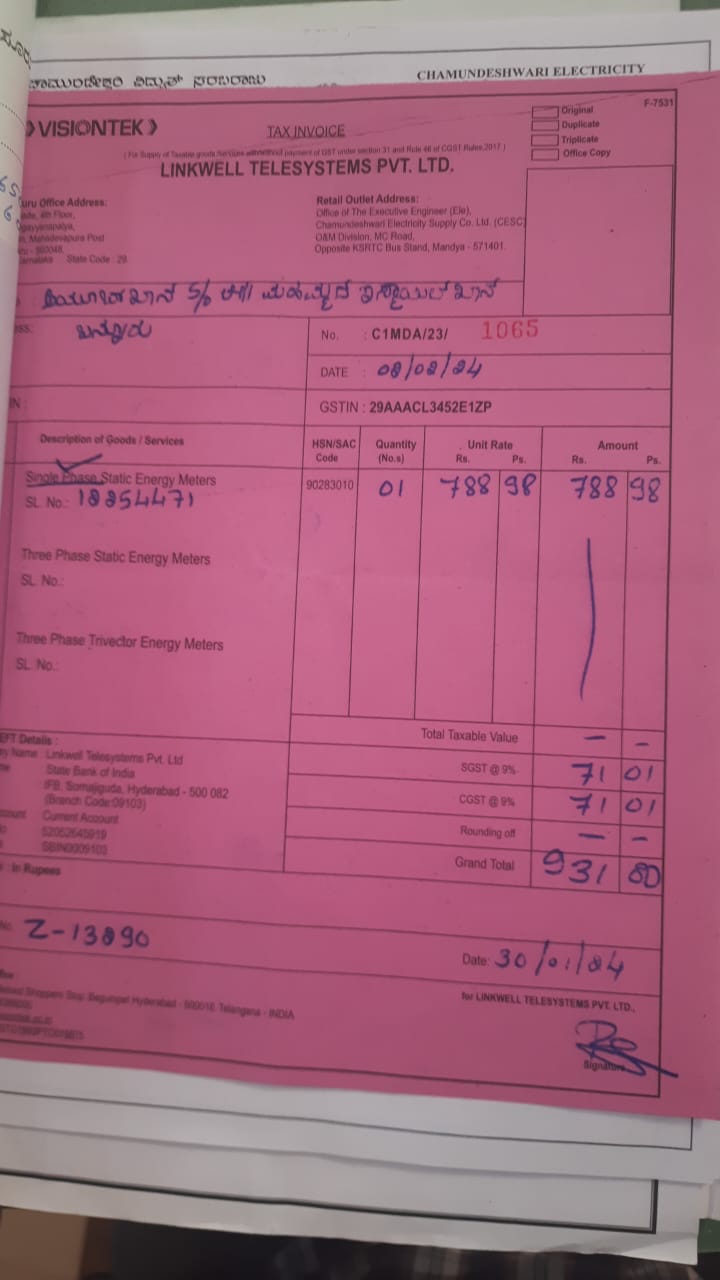 ಚಾಮುಂಡೇಶ್ವರಿ ವಿದ್ಯುತ್ ಸರಬರಾಜು
CHAMUNDESHWARI ELECTRICITY
F-7531
VISIONTEK
TAX INVOICE
Original
Duplicate
Triplicate
Office Copy
( For Supply of Taxable goods /services with/without payment of GST under section 31 and Role 46 of CGST Rules,2017 )
LINKWELL TELESYSTEMS PVT. LTD.
uru Office Address:
4th Floor,
Mahadevapura Post
560048
State Code : 29
Retail Outlet Address:
Office of The Executive Engineer (Ele),
Chamundeshwari Electricity Supply Co. Ltd. (CESC)
O&M Division, MC Road,
Opposite KSRTC Bus Stand, Mandya - 571401
S/o ಮಹಮ್ಮದ್ ಇಸ್ಮಾಯಿಲ್ ಖಾನ್
ess:
ಬನ್ನೂರು
No. : C1MDA/23/ 1065
DATE : 08/02/24
IN :
GSTIN : 29AAACL3452E1ZP
Description of Goods / Services
HSN/SAC Code
Quantity (No.s)
Unit Rate
Rs. Ps.
Amount
Rs. Ps.
Single Phase Static Energy Meters
90283010 01 788 98 788 98
SL. No.: 18854471
Three Phase Static Energy Meters
SL. No.:
Three Phase Trivector Energy Meters
SL. No.:
Total Taxable Value — –
SGST @ 9% 71 01
CGST @ 9% 71 01
Rounding off — –
Grand Total 931 00
EFT Details :
ny Name : Linkwell Telesystems Pvt. Ltd
State Bank of India
IFB, Somajiguda, Hyderabad - 500 082
(Branch Code:09103)
count Current Account
52052645919
SBIN0009103
: In Rupees
No. Z-13890
Date: 30/01/24
Shoppers Stop, Begumpet Hyderabad - 500016 Telangana - INDIA
for LINKWELL TELESYSTEMS PVT. LTD.,
Signature